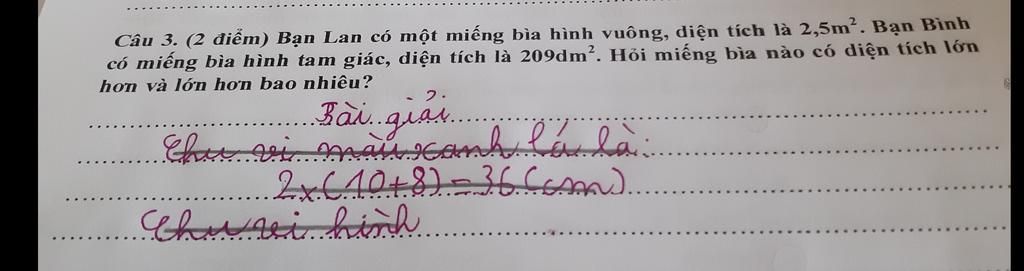 Câu 3. (2 điểm) Bạn Lan có một miếng bìa hình vuông, diện tích là 2,5m². Bạn Bình
có miếng bìa hình tam giác, diện tích là 209dm². Hỏi miếng bìa nào có diện tích lớn
hơn và lớn hơn bao nhiêu?
Bài giải
Chu vi màu xanh lá là:
2x(10+8)=36(cm)
Chu vi hình